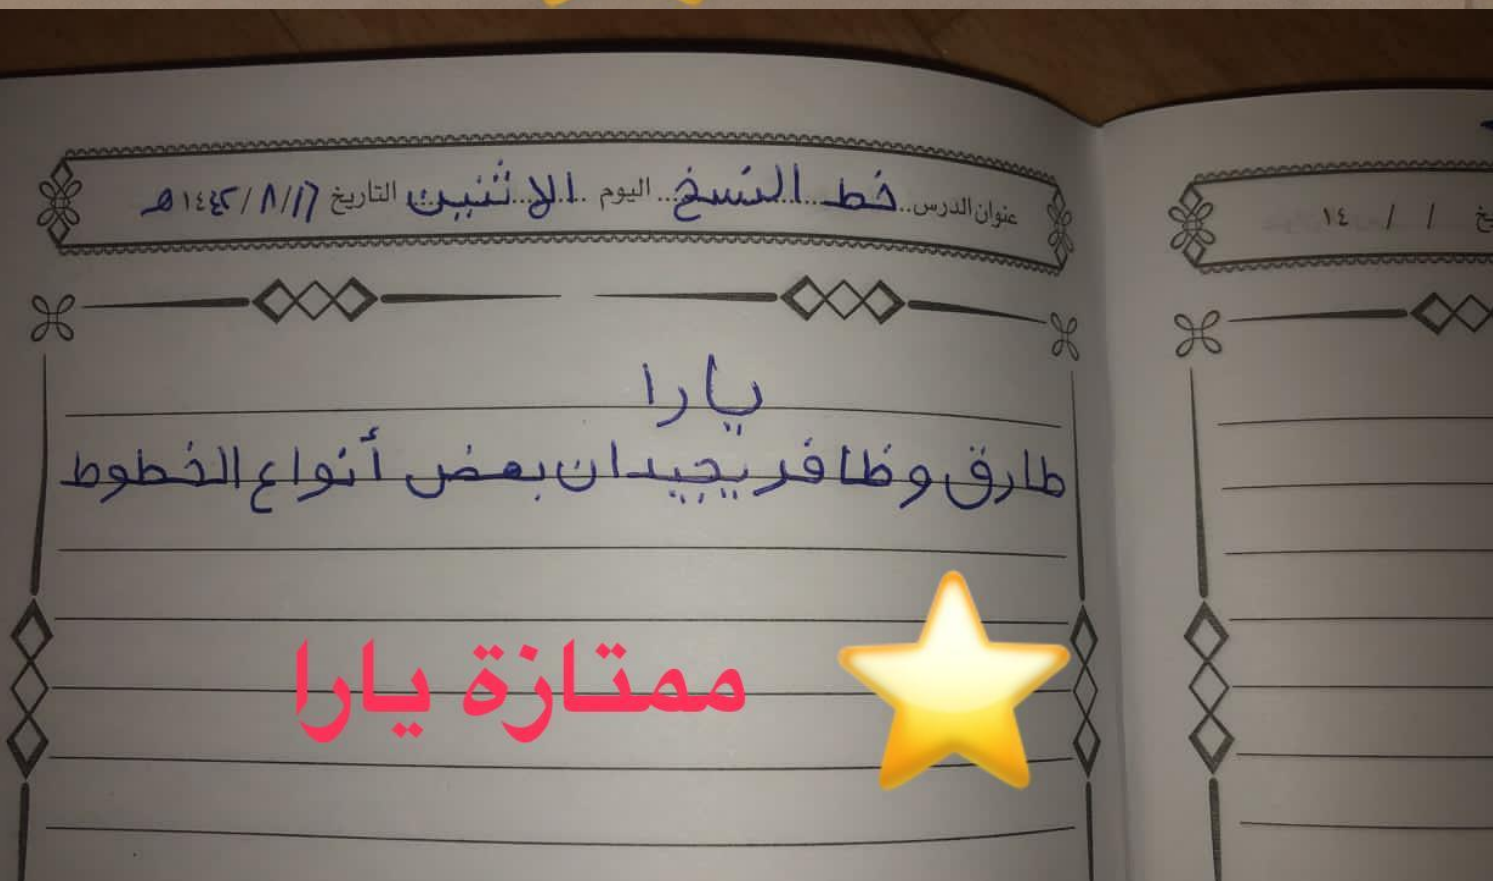 عنوان الدرس خط النسخ اليوم الاثنين التاريخ ١٦/ ٨/ ١٤٤٢هـ
يارا
طارق وظافر يجيدان بعض أنواع الخطوط
ممتازة يارا
/ / ١٤